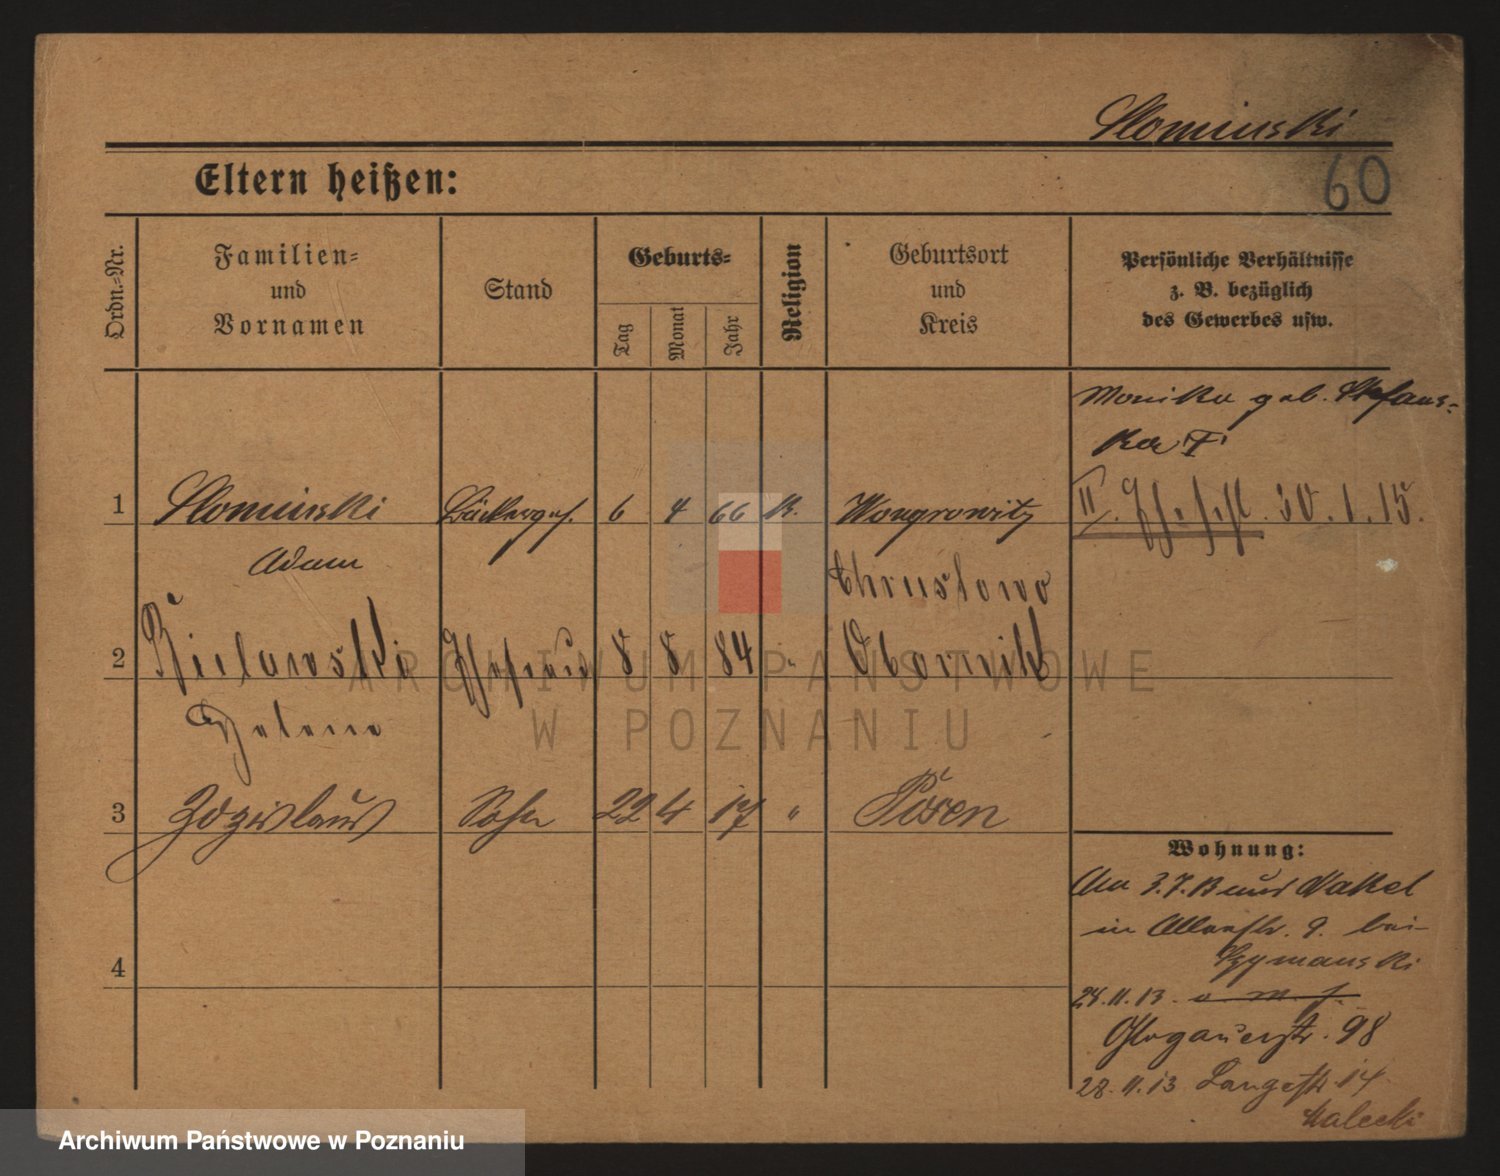 Slominski
Eltern heißen:
60
Ordn.=Nr.
Familien=
und
Vornamen
Stand
Geburts=
Tag
Monat
Jahr
Religion
Geburtsort
und
Kreis
Persönliche Verhältnisse
z. B. bezüglich
des Gewerbes usw.
Monika geb. Stefans-
ka
1 Slominski Bäckerges. 6 4 66 k. Wongrowitz
II. 30.1.15.
Adam
Chrustowo
2 Bielawski Ehefrau 8 8 84 " Obornik
Helene
3 Zdzislaus Sohn 22 4 17 " Posen
Wohnung:
Am 3.7.13 aus Nakel
in 9. bei
Szymanski
4
28.11.13.
Glogauerstr. 98
28.11.13 Langestr 14
Malecki
ARCHIWUM PAŃSTWOWE
W POZNANIU
Archiwum Państwowe w Poznaniu